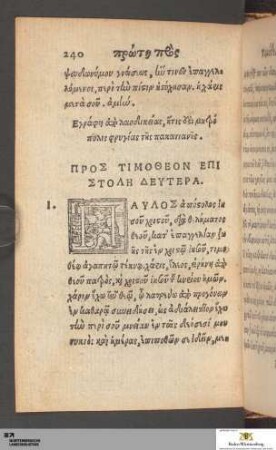 240 πρώτη πρὸς
ψευδωνύμου γνώσεως, ἥν τινες ἐπαγγελ-
λόμενοι, περὶ τὴν πίστιν ἠστόχησαν. ἡ χάρις
μετὰ σοῦ. ἀμήν.
Εγράφη ἀπὸ λαοδικείας, ἥτις ἐστὶ μητρό-
πολις φρυγίας τῆς πακατιανῆς.
ΠΡΟΣ ΤΙΜΟΘΕΟΝ ΕΠΙ
ΣΤΟΛΗ ΔΕΥΤΕΡΑ.
1. ΑΥΛΟΣ ἀπόστολος ἰη
σοῦ χριστοῦ, διὰ θελήματος
θεοῦ, κατ' ἐπαγγελίαν ζω
ῆς τῆς ἐν χριστῷ ἰησοῦ, τιμο-
θέῳ ἀγαπητῷ τέκνῳ, χάρις, ἔλεος, εἰρήνη ἀπὸ
θεοῦ πατρὸς, καὶ χριστοῦ ἰησοῦ τοῦ κυρίου ἡμῶν.
χάριν ἔχω τῷ θεῷ, ᾧ λατρεύω ἀπὸ προγόνων
ἐν καθαρᾷ συνειδήσει, ὡς ἀδιάλειπτον ἔχω
τὴν περὶ σοῦ μνείαν ἐν ταῖς δεήσεσί μου
νυκτὸς καὶ ἡμέρας, ἐπιποθῶν σε ἰδεῖν, με